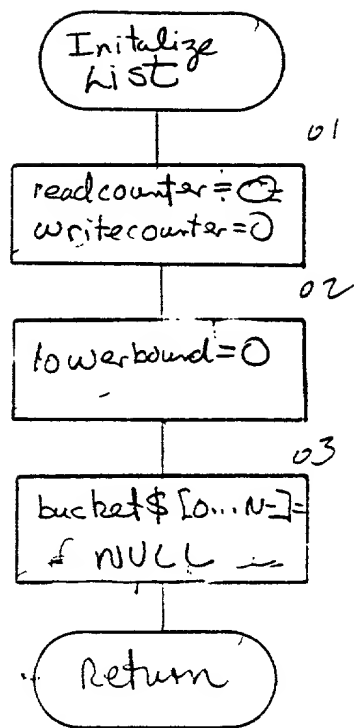 Initalize
List
01
readcounter=0
writecounter=0
02
lowerbound=0
03
bucket$ [0...N-]=
NULL
Return